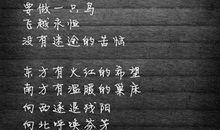 要做一只鸟
飞越永恒
没有迷途的苦恼
东方有火红的希望
南方有温暖的巢床
向西逐退残阳
向北呼唤芬芳